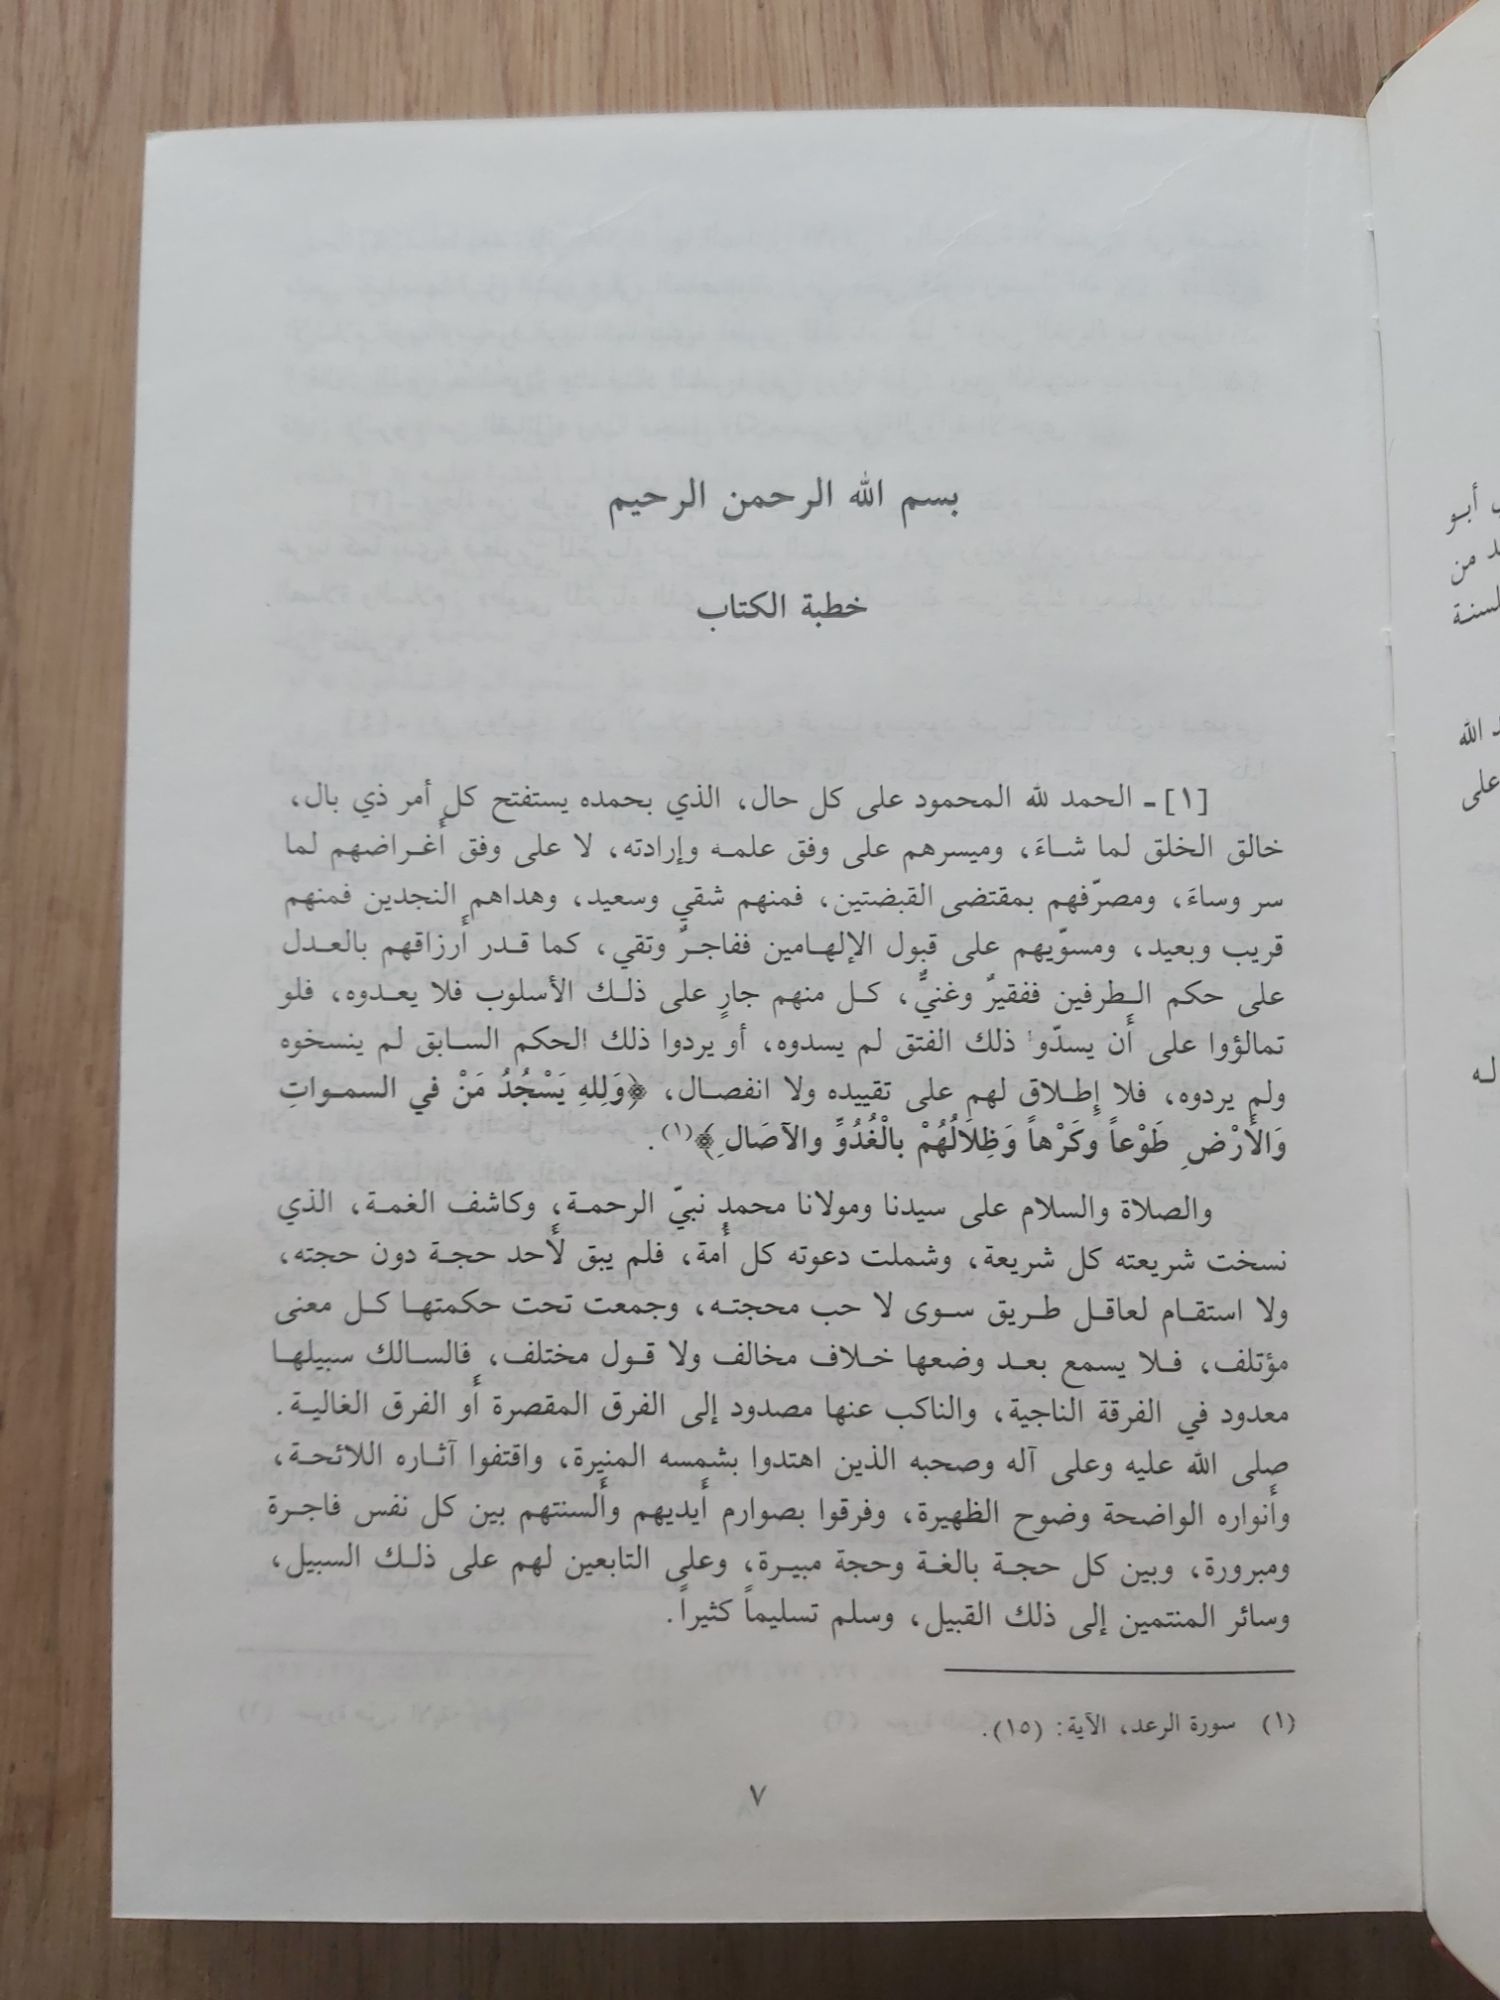 بسم الله الرحمن الرحيم
خطبة الكتاب
[١] ـ الحمد لله المحمود على كل حال، الذي بحمده يستفتح كل أمر ذي بال،
خالق الخلق لما شاءَ، وميسرهم على وفق علمه وإرادته، لا على وفق أغراضهم لما
سر وساءَ، ومصرّفهم بمقتضى القبضتين، فمنهم شقي وسعيد، وهداهم النجدين فمنهم
قريب وبعيد، ومسوّيهم على قبول الإلهامين ففاجرٌ وتقي، كما قدر أرزاقهم بالعدل
على حكم الطرفين ففقيرٌ وغنيٌّ، كل منهم جارٍ على ذلك الأسلوب فلا يعدوه، فلو
تمالؤوا على أن يسدّوا ذلك الفتق لم يسدوه، أو يردوا ذلك الحكم السابق لم ينسخوه
ولم يردوه، فلا إطلاق لهم على تقييده ولا انفصال، ﴿وَلِلهِ يَسْجُدُ مَنْ في السمواتِ
وَالأَرْضِ طَوْعاً وكَرْهاً وَظِلاَلُهُمْ بالْغُدُوِّ والآصَالِ﴾(١).
والصلاة والسلام على سيدنا ومولانا محمد نبيّ الرحمة، وكاشف الغمة، الذي
نسخت شريعته كل شريعة، وشملت دعوته كل أمة، فلم يبق لأحد حجة دون حجته،
ولا استقام لعاقل طريق سوى لا حب محجته، وجمعت تحت حكمتها كل معنى
مؤتلف، فلا يسمع بعد وضعها خلاف مخالف ولا قول مختلف، فالسالك سبيلها
معدود في الفرقة الناجية، والناكب عنها مصدود إلى الفرق المقصرة أو الفرق الغالية.
صلى الله عليه وعلى آله وصحبه الذين اهتدوا بشمسه المنيرة، واقتفوا آثاره اللائحة،
وأنواره الواضحة وضوح الظهيرة، وفرقوا بصوارم أيديهم وألسنتهم بين كل نفس فاجرة
ومبرورة، وبين كل حجة بالغة وحجة مبيرة، وعلى التابعين لهم على ذلك السبيل،
وسائر المنتمين إلى ذلك القبيل، وسلم تسليماً كثيراً.
(١) سورة الرعد، الآية: (١٥).
٧
أبو
من
لسنة
الله
على
له